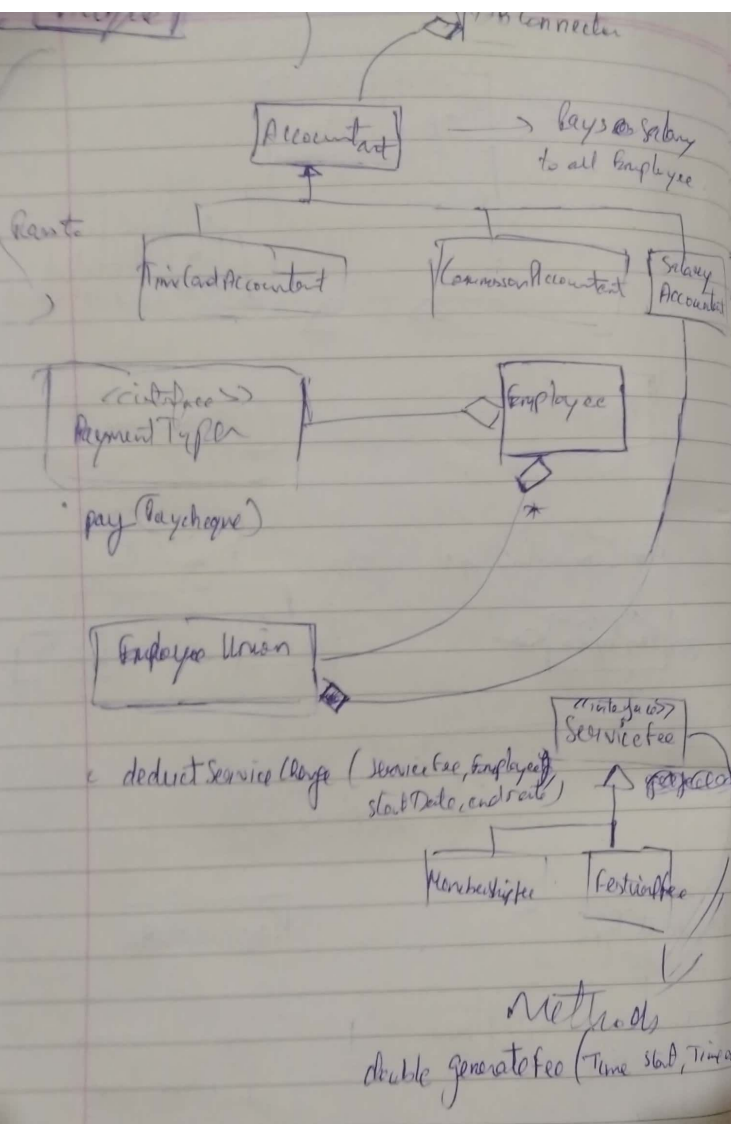 DBConnector
Accountant
Pays salary
to all Employee
TimeCardAccountant
CommissionAccountant
Salary
Accountant
<<interface>>
Payment Type
Employee
pay (Paycheque)
*
Employee Union
<<interface>>
ServiceFee
deductServiceCharge (ServiceFee, Employee,
startDate, endDate)
MembershipFee
FestivalFee
Methods
double generateFee (Time start, Time